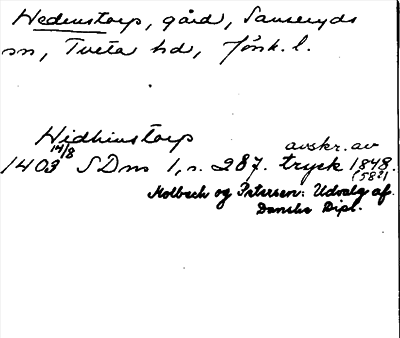 Hedenstorp, gård, Sanseryds
sn, Tveta hd, Jönk. l.
Hidhinstorp
14/8 avskr. av
1403 SDns 1, s. 287. tryck 1848.
(58?)
Molbech og Petersen: Udvalg af
Danske Dipl.